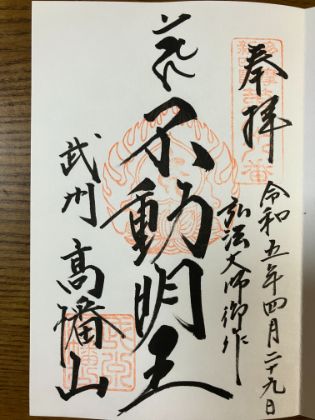 奉拝
令和五年四月二十九日
弘法大師御作
不動明王
武州
高幡山